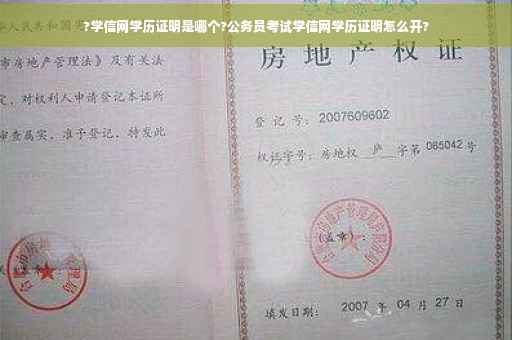 ?学信网学历证明是哪个?公务员考试学信网学历证明怎么开?
人民共和国宪
市房地产管理法》及有关法
定，对权利人申请登记本证所
审查属实，准予登记，特发此
房地产权证
登记号：2007609602
权证字号：房地权 庐 字第 085042 号
(盖章)：
填发日期： 2007 年 04 月 27 日